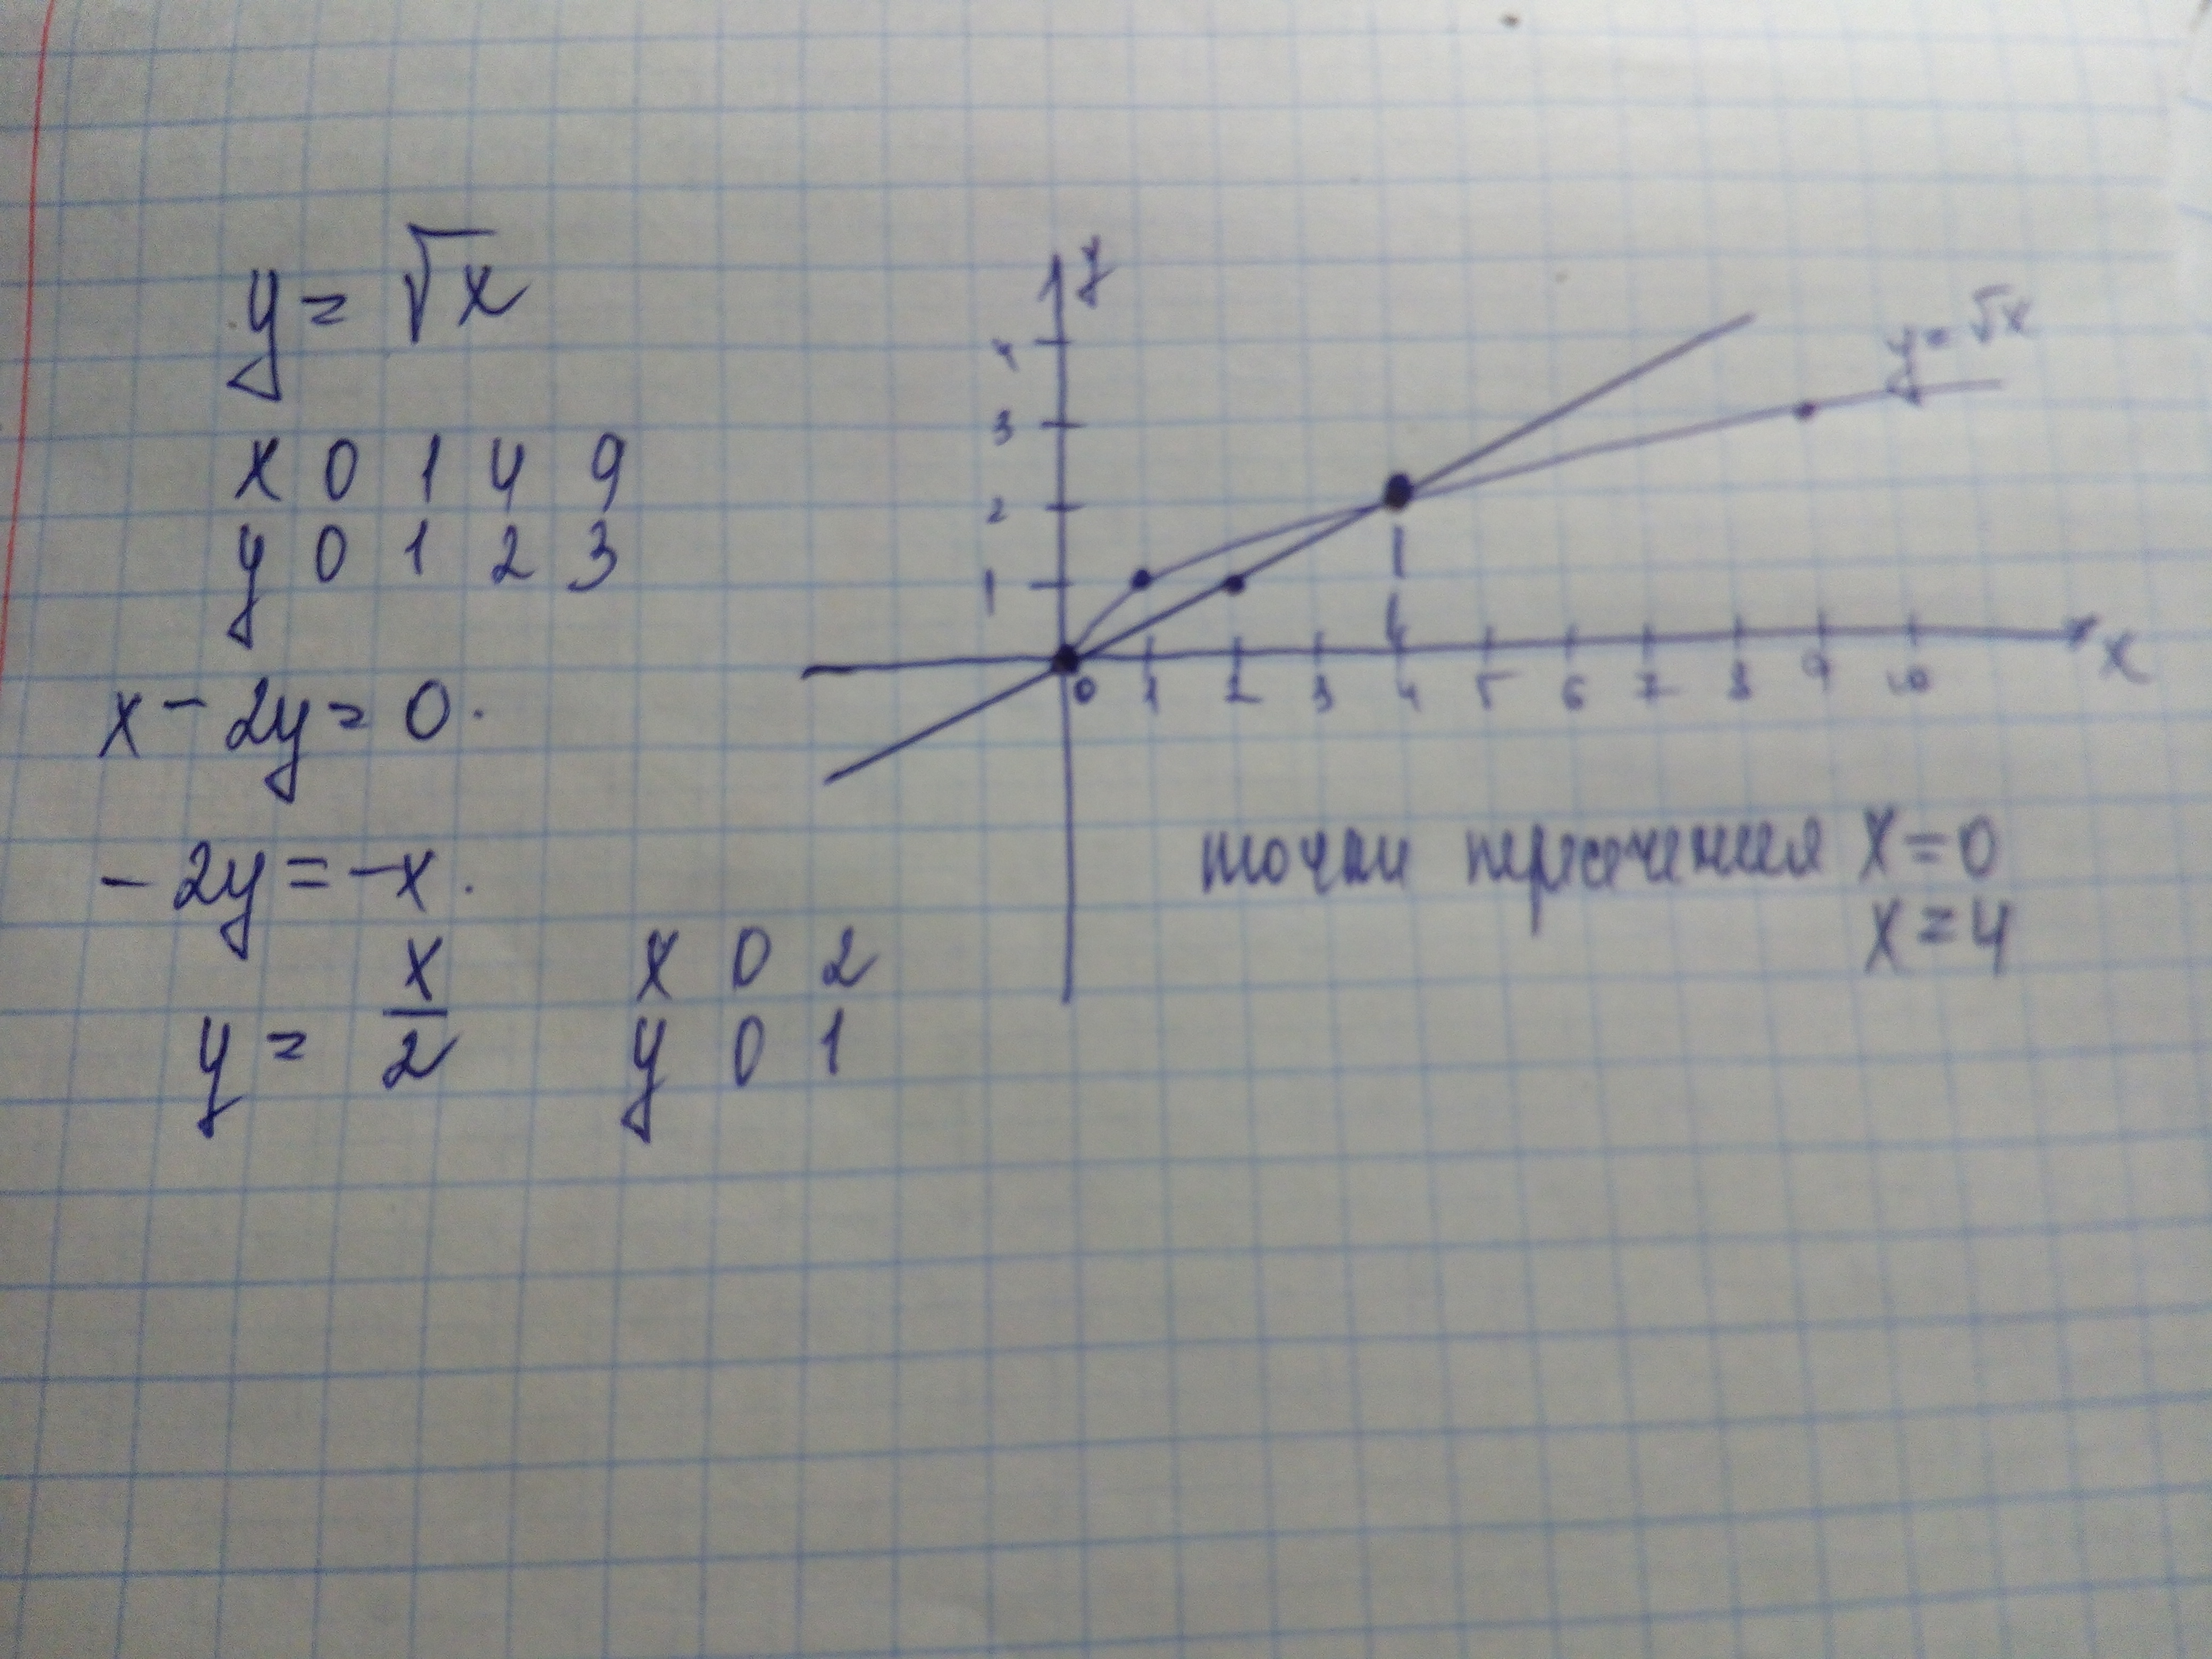 y = √x
x 0 1 4 9
y 0 1 2 3
x - 2y = 0.
-2y = -x.
y = x/2
x 0 2
y 0 1
y
4
3
2
1
0 1 2 3 4 5 6 7 8 9 10
x
y = √x
точки пересечения x = 0
x = 4